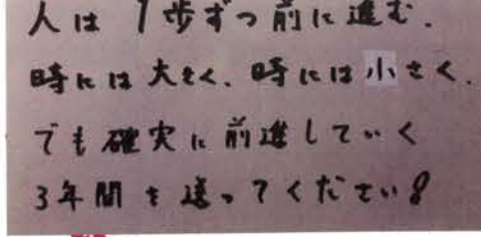 人は1歩ずつ前に進む.
時には大きく、時には小さく、
でも確実に前進していく
3年間を送ってください!